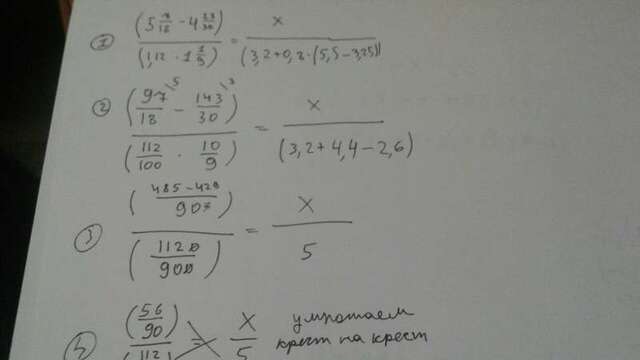 ① (5 7/18 - 4 23/30) / (1,12 · 1 1/9) = x / (3,2+0,8·(5,5-3,25))
② (97/18 \5 - 143/30 \3) / (112/100 · 10/9) = x / (3,2+4,4-2,6)
③ ((485-429)/90) / (1120/900) = x / 5
(56/90) / (112 = x / 5 умножаем
крест на крест